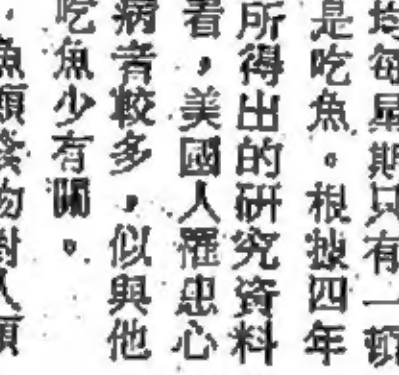 均每星期只有一頓
是吃魚。根據四年
所得出的研究資料
看，美國人罹患心
病者較多，似與他
吃魚少有關。
，魚類物對人類